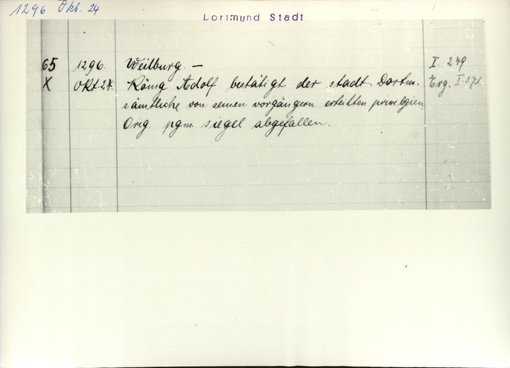 1296 Okt. 24
Dortmund Stadt
65 1296. Weilburg. – I. 279
X Okt. 24. König Adolf bestätigt der stadt Dortm. Erg. I
sämtliche von seinen vorgängern erteilten privilegien
Orig. pgm. siegel abgefallen.